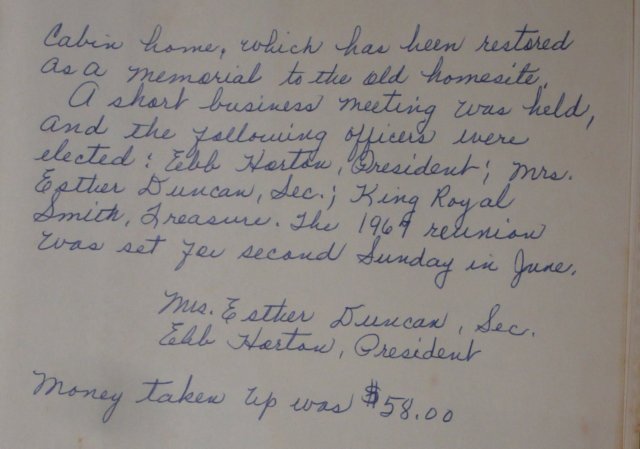 Cabin home, which has been restored
as a memorial to the old homesite.
A short business meeting was held,
and the following officers were
elected: Ebb Horton, President; Mrs.
Esther Duncan, Sec.; King Royal
Smith, Treasure. The 1967 reunion
was set for second Sunday in June.
Mrs. Esther Duncan, Sec.
Ebb Horton, President
Money taken up was $58.00